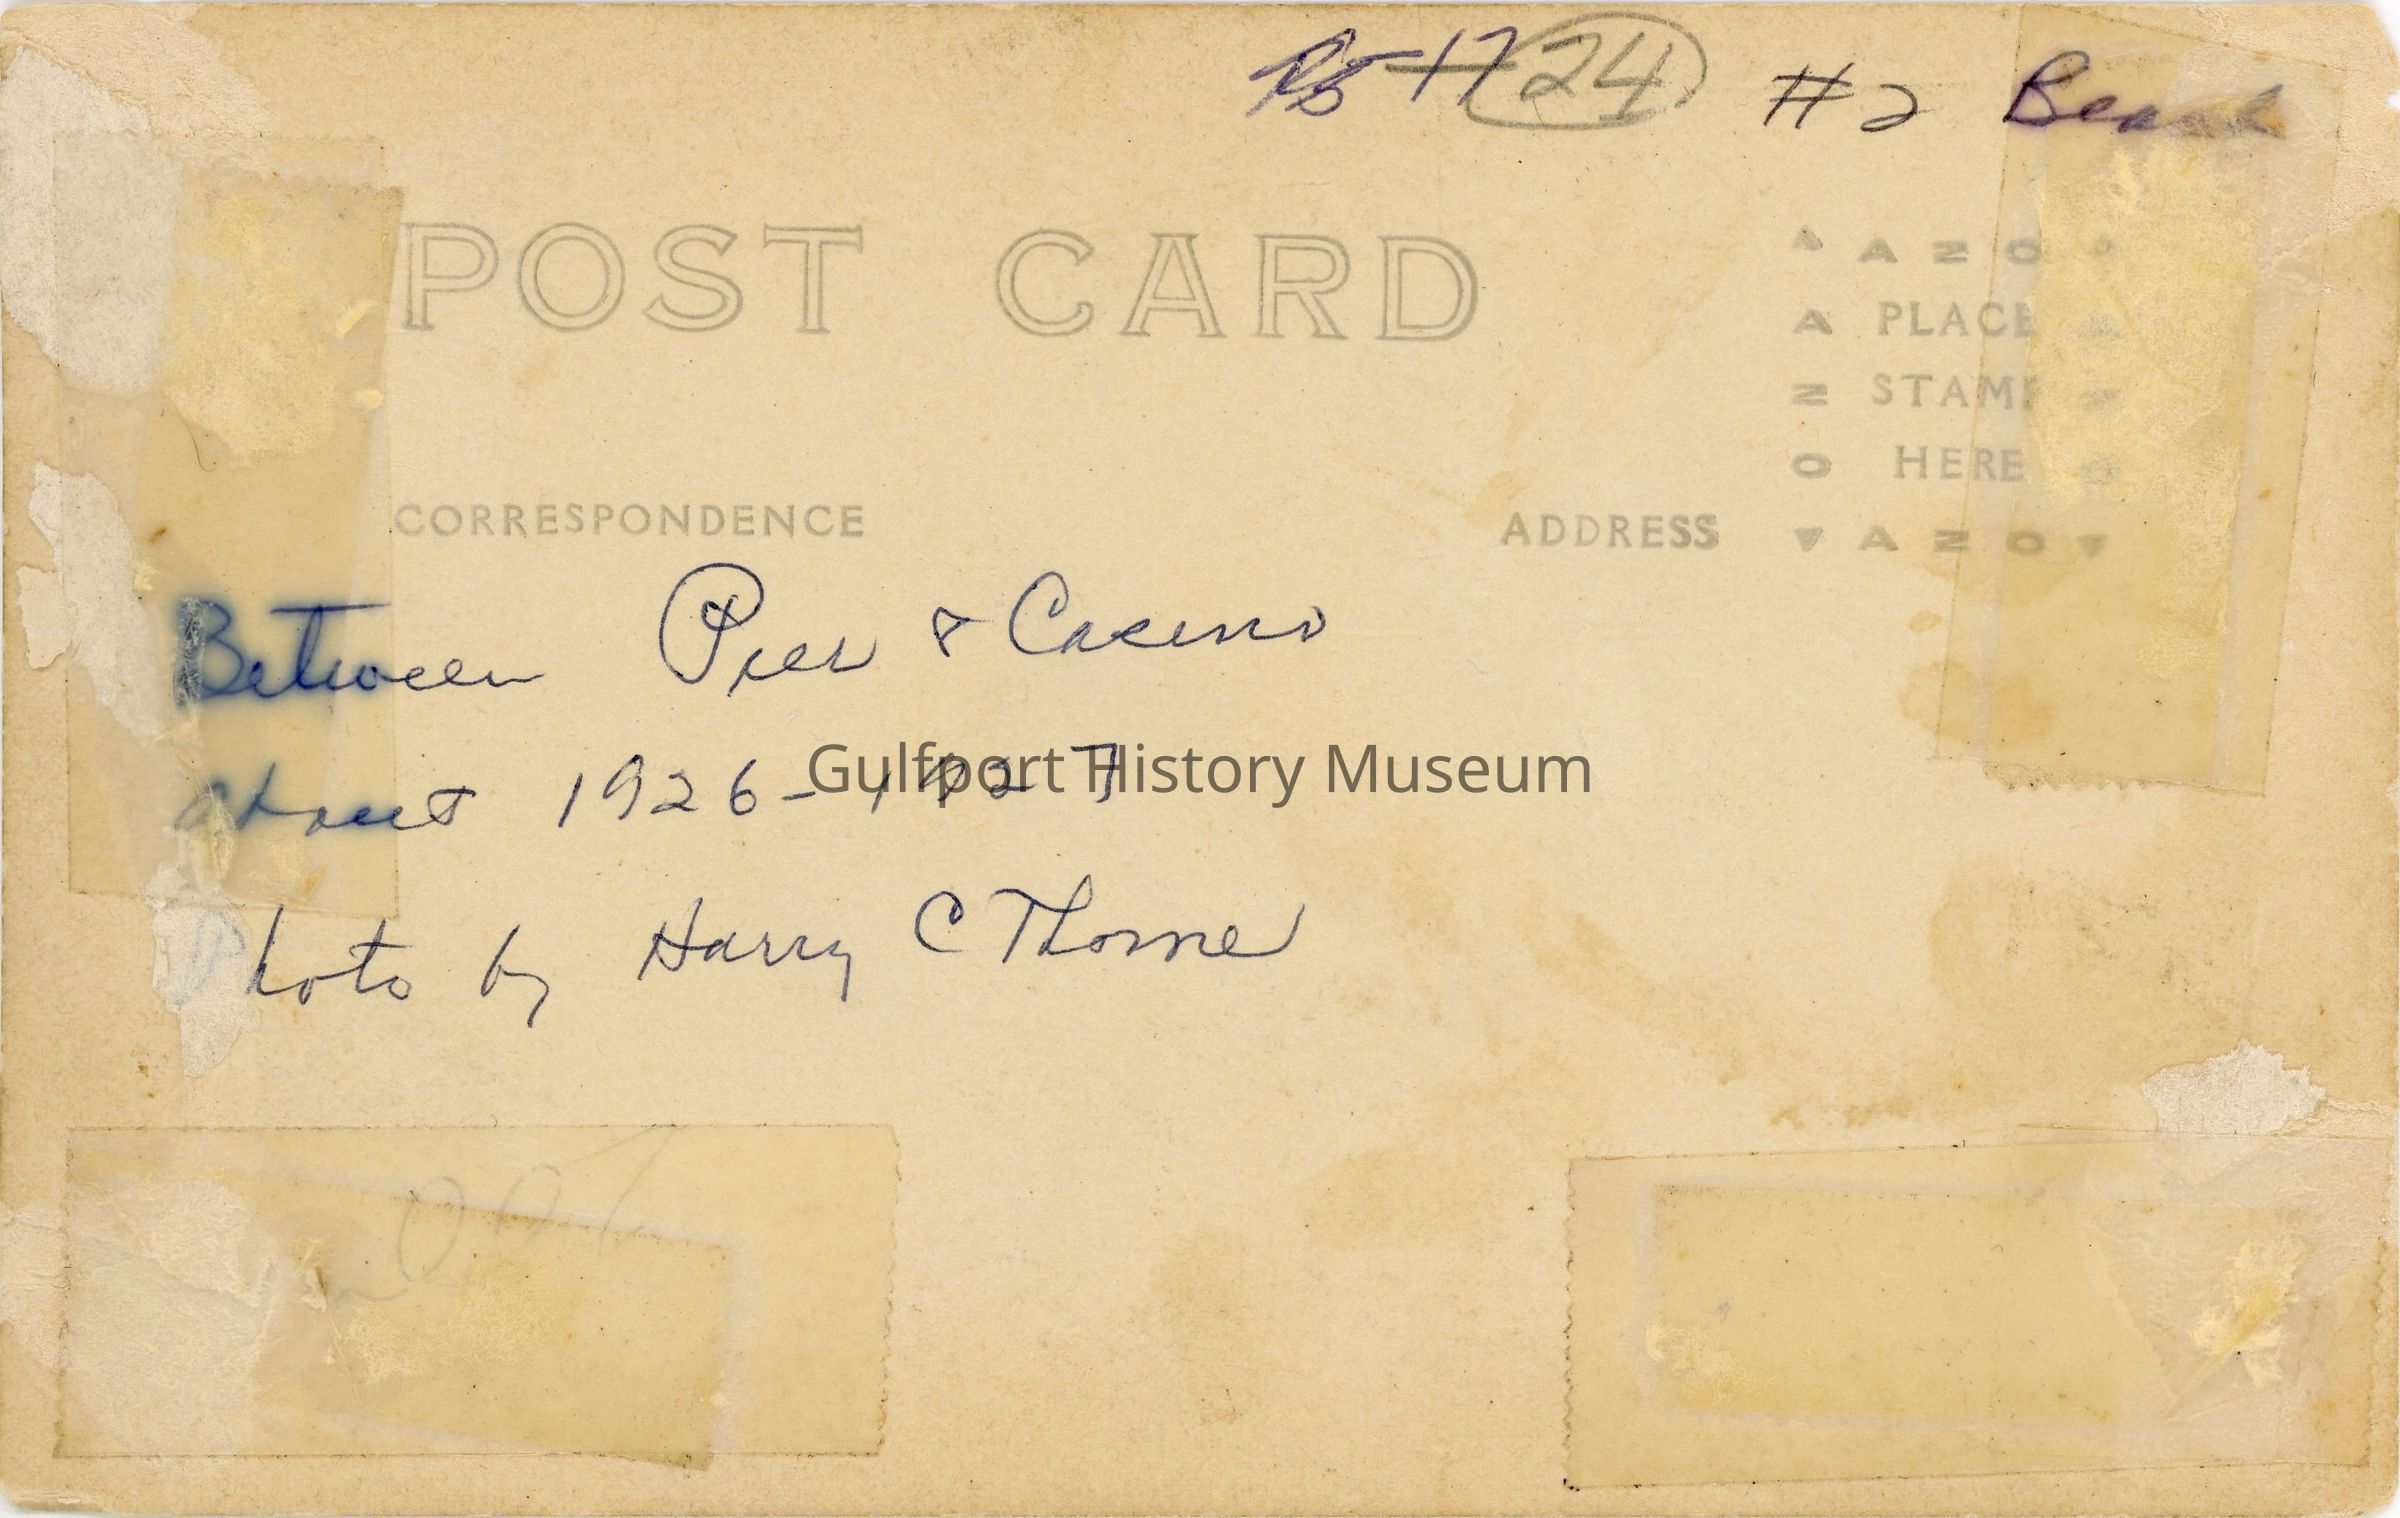 17 24 #2 Beach
POST CARD
AZO
PLACE
STAMP
HERE
AZO
CORRESPONDENCE ADDRESS
Between Pier & Casino
about 1926-1927
Gulfport History Museum
Photo by Harry C Thorne